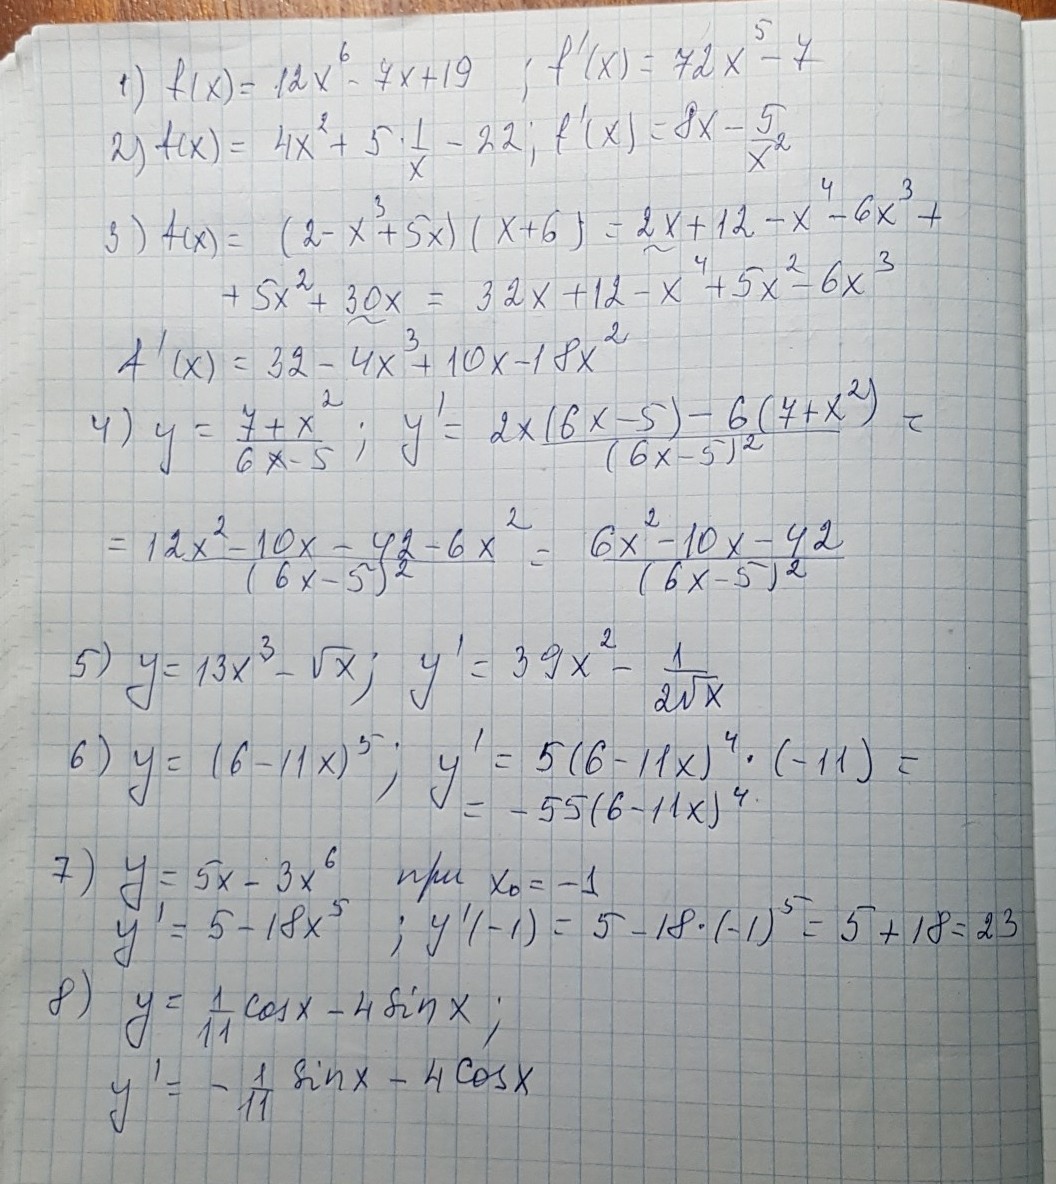 1) f(x) = 12x⁶ - 7x + 19 ; f'(x) = 72x⁵ - 7
2) f(x) = 4x² + 5 · 1/x - 22 ; f'(x) = 8x - 5/x²
3) f(x) = (2 - x³ + 5x) (x + 6) = 2x + 12 - x⁴ - 6x³ +
+ 5x² + 30x = 32x + 12 - x⁴ + 5x² - 6x³
f'(x) = 32 - 4x³ + 10x - 18x²
4) y = (7 + x²)/(6x - 5) ; y' = (2x(6x - 5) - 6(7 + x²))/(6x - 5)² =
= (12x² - 10x - 42 - 6x²)/(6x - 5)² = (6x² - 10x - 42)/(6x - 5)²
5) y = 13x³ - √x ; y' = 39x² - 1/(2√x)
6) y = (6 - 11x)⁵ ; y' = 5(6 - 11x)⁴ · (-11) =
= -55(6 - 11x)⁴.
7) y = 5x - 3x⁶ при x₀ = -1
y' = 5 - 18x⁵ ; y'(-1) = 5 - 18 · (-1)⁵ = 5 + 18 = 23
8) y = 1/11 cosx - 4 sinx ;
y' = - 1/11 sinx - 4 cosx